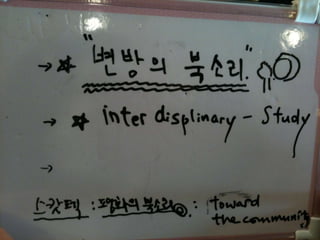 → ☆ "변방의 북소리"
→ ☆ inter displinary - Study
→
스캇펙 : 평화의 북소리 : toward
the community